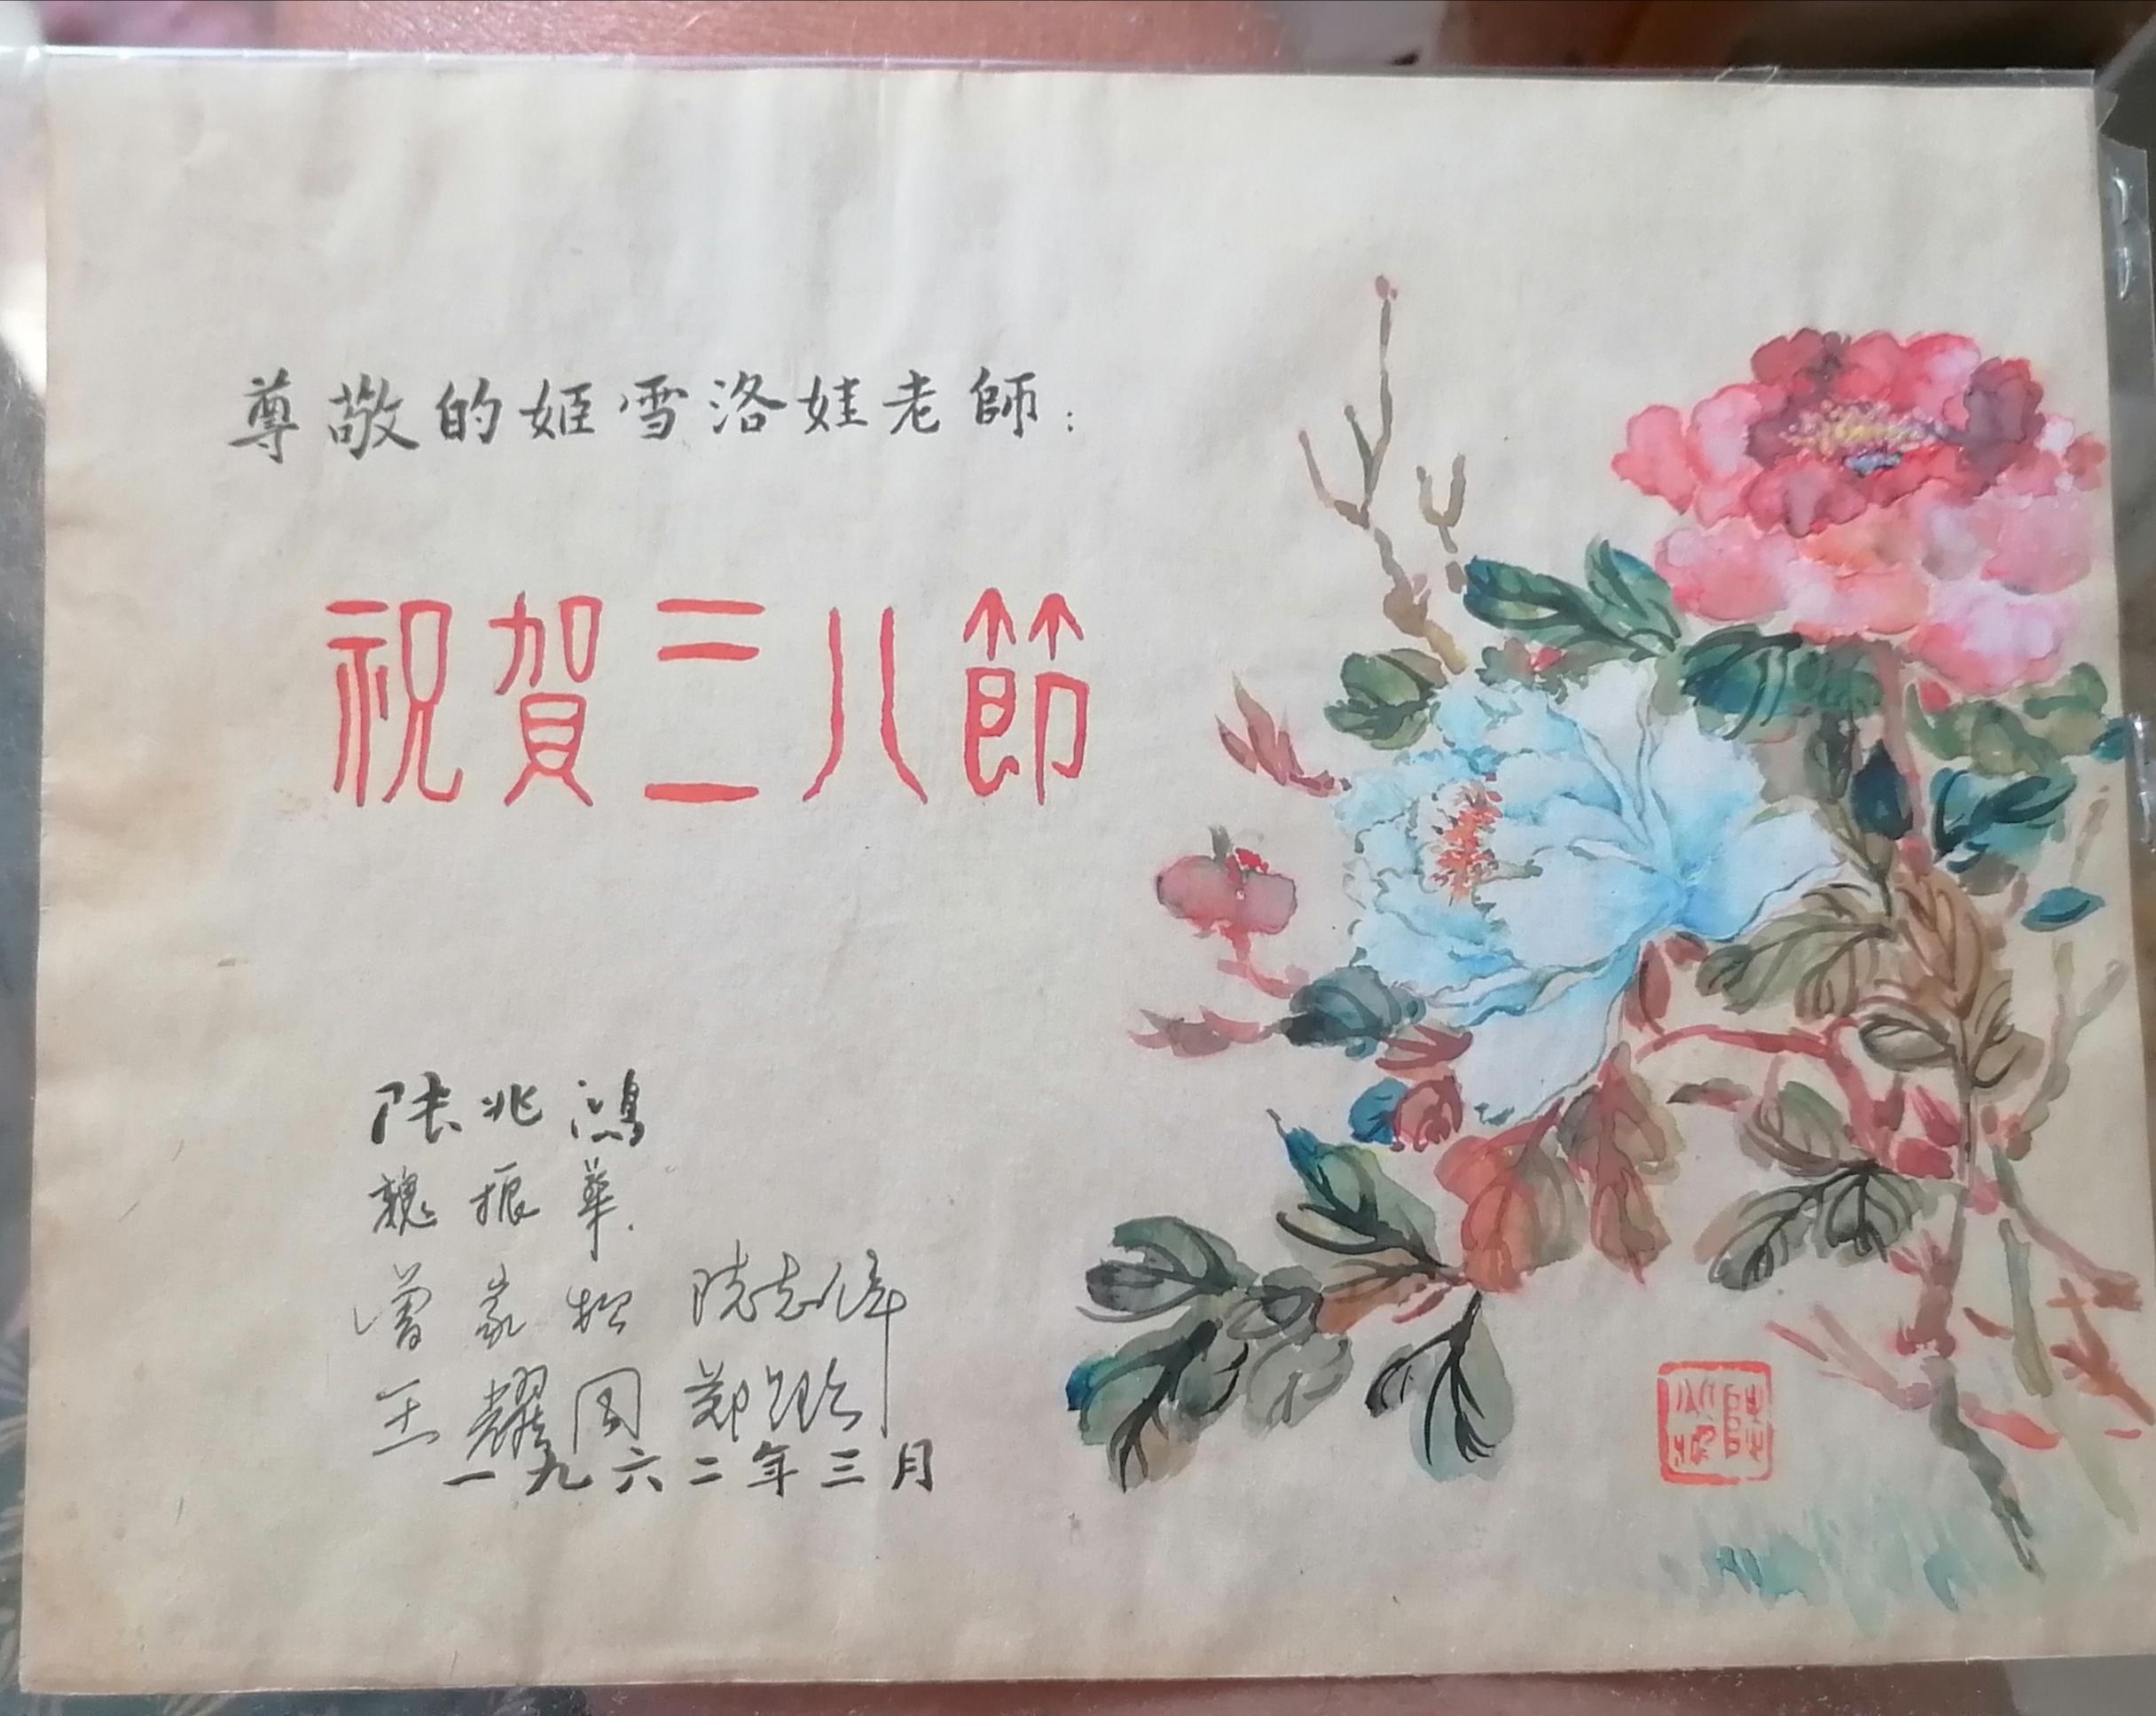 尊敬的姬雪洛娃老師:
祝賀三八節
陆兆鴻
魏振華
曾家松 陈志伟
王耀国 郑
一九六二年三月